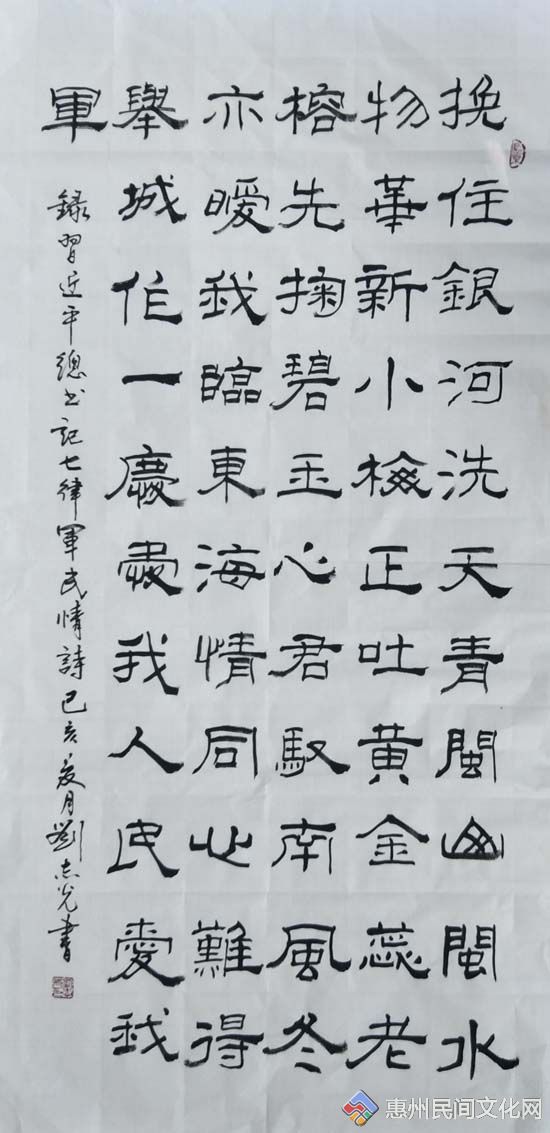 挽住銀河洗天青閩山閩水
物華新小檢正吐黃金蕊老
榕先掬碧玉心君馭南風冬
亦暖我臨東海情同心難得
舉城作一慶愛我人民愛我
軍
錄習近平總书記七律軍民情詩己亥夏月劉志光書
惠州民间文化网